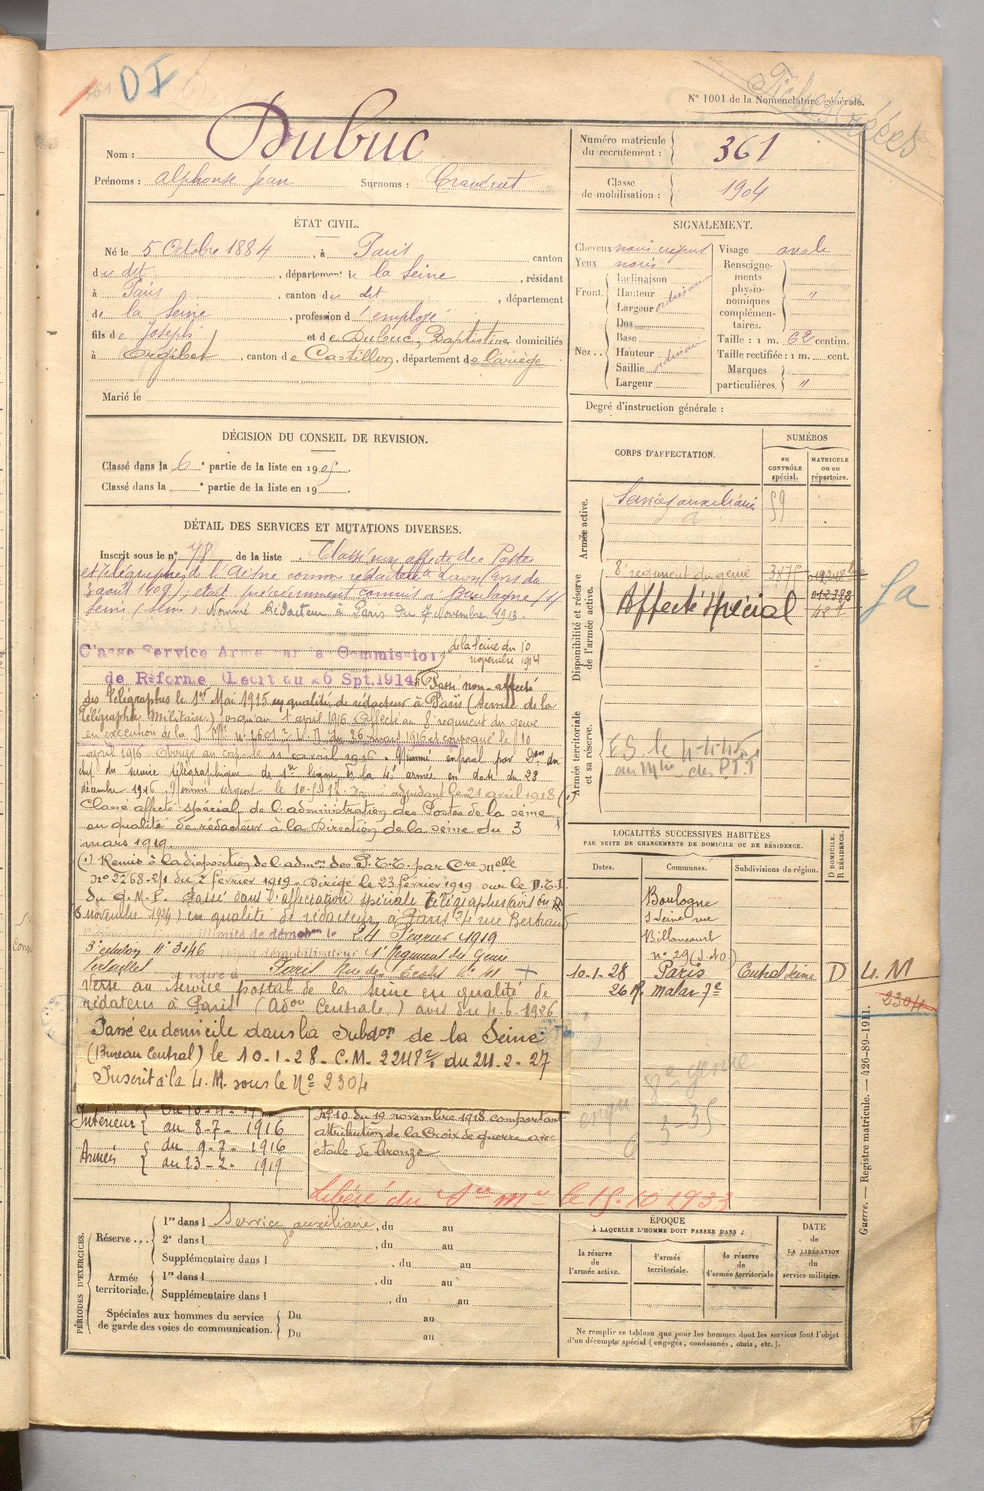 361 D I
Fiches Créées
N° 1001 de la Nomenclature générale.
Nom : Dubuc
Prénoms : Alphonse Jean Surnoms :
Numéro matricule du recrutement : 361
Classe de mobilisation : 1904
ÉTAT CIVIL.
Né le 5 Octobre 1884, à Paris canton
du dit, département de la Seine, résidant
à Paris, canton du dit, département
de la Seine, profession d'employé
fils de Joseph et de Dubuc, Baptistine domiciliés
à, canton de Castillon, département de l'ariège
Marié le
SIGNALEMENT.
Cheveux noirs
Yeux noirs
Front. Inclinaison
Hauteur
Largeur ordinaire
Nez.. Dos
Base
Hauteur ordinaire
Saillie
Largeur
Visage ovale
Renseignements physionomiques complémentaires. "
Taille : 1 m. 62 centim.
Taille rectifiée : 1 m. cent.
Marques particulières. "
Degré d'instruction générale :
DÉCISION DU CONSEIL DE REVISION.
Classé dans la 6e partie de la liste en 1905.
Classé dans la e partie de la liste en 19 .
CORPS D'AFFECTATION.
NUMÉROS
au CONTRÔLE spécial.
MATRICULE ou au répertoire.
Armée active.
Services auxiliaires 59
Disponibilité et réserve de l'armée active.
8e régiment du génie 3875
Affecté spécial
Sa
Armée territoriale et sa réserve.
DÉTAIL DES SERVICES ET MUTATIONS DIVERSES.
Inscrit sous le n° 78 de la liste. Classé non affecté des Postes
et Télégraphes de l'Aisne comme rédacteur à Laon (avis du
3 août 1909), était précédemment commis à Boulogne s/
Seine (Seine). Nommé Rédacteur à Paris du 7 Novembre 1913.
Classé Service Armé par la Commission de la Seine du 10 novembre 1914
de Réforme (Décret du 26 Sept. 1914) Passé non-affecté
des Télégraphes le 1er Mai 1915 en qualité de rédacteur à Paris (Service de la
Télégraphie Militaire) jusqu'au 1 avril 1916. Affecté au 8e régiment du génie
en exécution de la D. Mlle n° du 26 mars 1916 et convoqué le 10
avril 1916. Arrivé au corps le 11 avril 1916. Nommé caporal par Don du
chef du service télégraphique de 1re ligne de la 4e armée en date du 23
décembre 1916. Nommé sergent le adjudant le 21 avril 1918 (1)
Classé affecté spécial de l'administration des Postes de la Seine
en qualité de rédacteur à la Direction de la Seine du 3
mars 1919
(1) Remis à la disposition de l'admon des P.T.T. par Cre Mlle
n° 2268-2/1 du 2 février 1919 - Dirigé le 23 février 1919 sur le D.T.I.
du G.M.P. Passé dans l'affectation spéciale Télégraphes (avis du
6 novembre 1924) en qualité de rédacteur à Paris 24 rue Bertrand
illimité de démobon le 24 Février 1919
3e échelon N° 3146 Dépôt démobilisateur 1er Régiment du Génie
Versailles se retire à Paris
Versé au service postal de la Seine en qualité de
rédacteur à Paris (Adon Centrale) avis du 4-6-1926
Passé en domicile dans la Subdon de la Seine
(Bureau Central) le 10-1-28 - C.M. du 24-2-27
Inscrit à la 4.M. sous le N° 2304
Intérieur { au 8-7-1916
Armées { du 9-7-1916
au 23-2-1919
N° 10 du 19 novembre 1918 comportant
attribution de la Croix de guerre avec
étoile de bronze
Libéré du Sce Mre le 15.10.1933
E.S. le
au Mtre des P.T.T
LOCALITÉS SUCCESSIVES HABITÉES
PAR SUITE DE CHANGEMENTS DE DOMICILE OU DE RÉSIDENCE.
Dates. Communes. Subdivisions de région. D DOMICILE. R RÉSIDENCE.
Boulogne
s/Seine rue
Billancourt
n° 29
10-1-28 Paris Central Seine D
26 R. Malar 7e
4.M
2304
8e génie
3-35
PÉRIODES D'EXERCICES.
Réserve... 1re dans l Service auxiliaire, du au
2e dans l, du au
Supplémentaire dans l, du au
Armée territoriale. 1re dans l, du au
Supplémentaire dans l, du au
Spéciales aux hommes du service de garde des voies de communication. Du au
Du au
ÉPOQUE
À LAQUELLE L'HOMME DOIT PASSER DANS :
la réserve de l'armée active.
l'armée territoriale.
la réserve de l'armée territoriale
DATE de LA LIBÉRATION du service militaire.
Ne remplir ce tableau que pour les hommes dont les services font l'objet
d'un décompte spécial (engagés, condamnés, omis, etc.).
Guerre. — Registre matricule. — 426-89-1911.